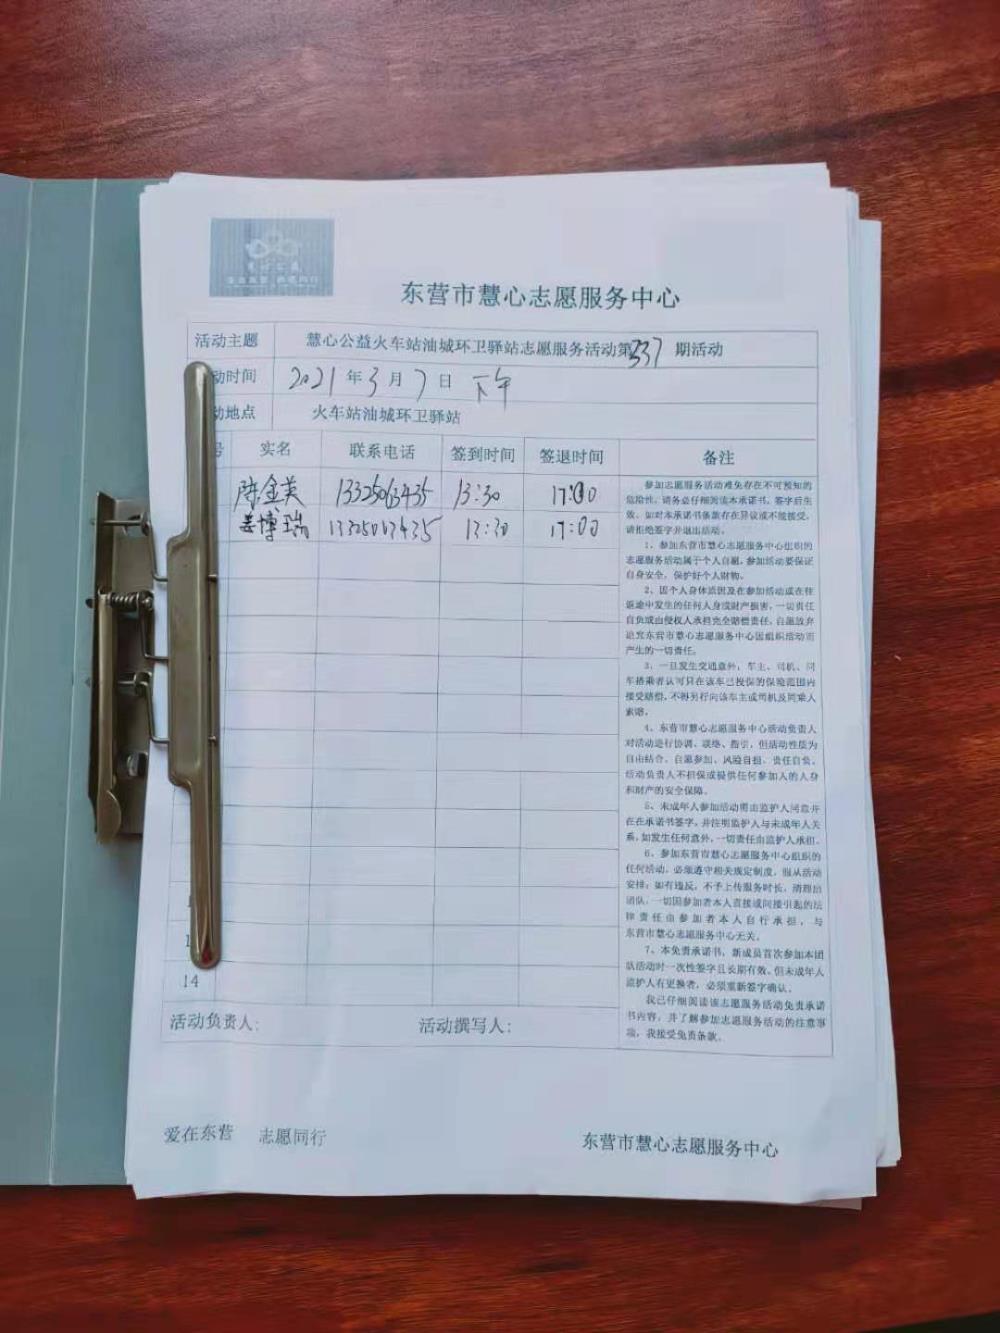 东营市慧心志愿服务中心
活动主题 慧心公益火车站油城环卫驿站志愿服务活动第337期活动
动时间 2021年3月7日 下午
动地点 火车站油城环卫驿站
号 实名 联系电话 签到时间 签退时间 备注
陈金英 13325063435 13:30 17:00
姜博瑞 13325063435 13:30 17:00
参加志愿服务活动难免存在不可预知的
危险性，请务必仔细阅读本承诺书，签字后生
效。如对本承诺书条款存在异议或不能接受，
请拒绝签字并退出活动。
1、参加东营市慧心志愿服务中心组织的
志愿服务活动属于个人自愿，参加活动要保证
自身安全，保护好个人财物。
2、因个人身体原因及在参加活动或在往
返途中发生的任何人身或财产损害，一切责任
自负或由侵权人承担完全赔偿责任，自愿放弃
追究东营市慧心志愿服务中心因组织活动而
产生的一切责任。
3、一旦发生交通意外，车主、司机、同
车搭乘者认可只在该车已投保的保险范围内
接受赔偿，不得另行向该车主或司机及同乘人
索赔。
4、东营市慧心志愿服务中心活动负责人
对活动进行协调、联络、指引，但活动性质为
自由结合、自愿参加、风险自担、责任自负。
活动负责人不担保或提供任何参加人的人身
和财产的安全保障。
5、未成年人参加活动需由监护人同意并
在在承诺书签字，并注明监护人与未成年人关
系，如发生任何意外，一切责任由监护人承担。
6、参加东营市慧心志愿服务中心组织的
任何活动，必须遵守相关规定制度，服从活动
安排；如有违反，不予上传服务时长，清理出
团队，一切因参加者本人直接或间接引起的法
律责任由参加者本人自行承担，与
东营市慧心志愿服务中心无关。
7、本免责承诺书，新成员首次参加本团
队活动时一次性签字且长期有效。但未成年人
监护人有更换者，必须重新签字确认。
我已仔细阅读该志愿服务活动免责承诺
书内容，并了解参加志愿服务活动的注意事
项，我接受免责条款。
14
活动负责人: 活动撰写人:
爱在东营 志愿同行 东营市慧心志愿服务中心